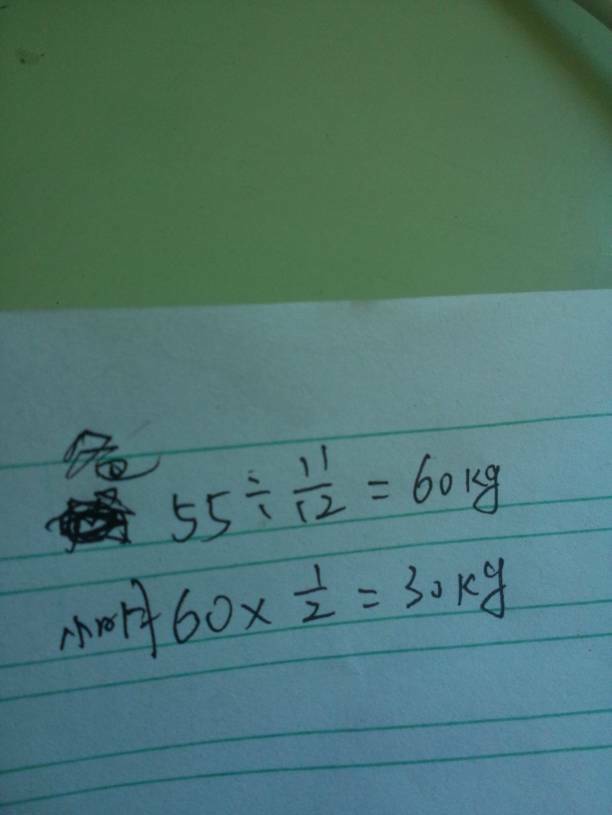 爸
55÷11/12=60kg
小明60×1/2=30kg